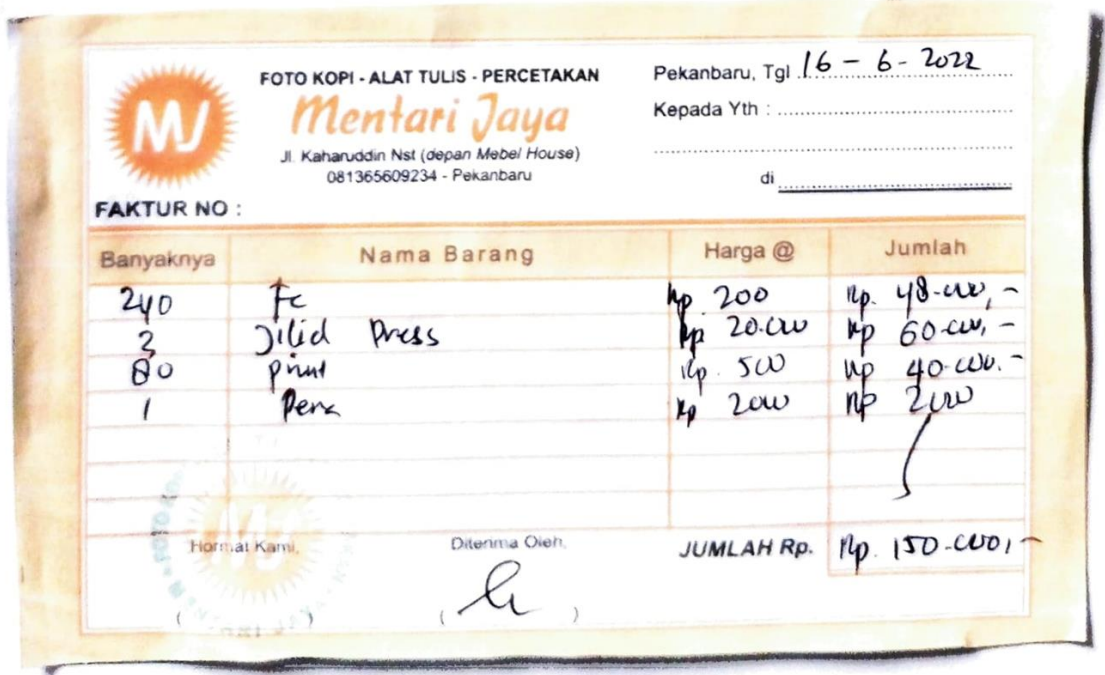 MJ
FOTO KOPI - ALAT TULIS - PERCETAKAN
Mentari Jaya
Jl. Kaharuddin Nst (depan Mebel House)
081365609234 - Pekanbaru
Pekanbaru, Tgl. 16 - 6 - 2022
Kepada Yth :
di
FAKTUR NO :
Banyaknya Nama Barang Harga @ Jumlah
240 Fc Rp. 200 Rp. 48.000,-
3 Jilid Press Rp. 20.000 Rp 60.000,-
80 print Rp. 500 Rp 40.000.-
1 Pena Rp 2000 Rp 2000
Hormat Kami, Diterima Oleh, JUMLAH Rp. Rp. 150.000,-
( ) ( )